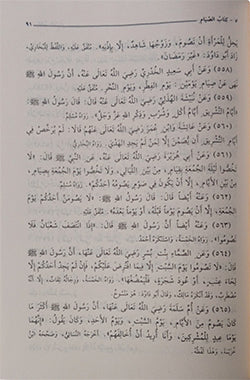 ٧ - كِتَابُ الصِّيَامِ ٩١
يَحِلُّ لِلْمَرْأَةِ أَنْ تَصُومَ، وَزَوْجُهَا شَاهِدٌ، إِلَّا بِإِذْنِهِ». مُتَّفَقٌ عَلَيْهِ، وَاللَّفْظُ لِلْبُخَارِيِّ،
زَادَ أَبُو دَاوُدَ: «غَيْرَ رَمَضَانَ».
(٥٥٨) وَعَنْ أَبِي سَعِيدٍ الْخُدْرِيِّ رَضِيَ اللَّهُ تَعَالَى عَنْهُ، أَنَّ رَسُولَ اللَّهِ ﷺ
نَهَى عَنْ صِيَامِ يَوْمَيْنِ: يَوْمِ الْفِطْرِ، وَيَوْمِ النَّحْرِ. مُتَّفَقٌ عَلَيْهِ.
(٥٥٩) وَعَنْ نُبَيْشَةَ الْهُذَلِيِّ رَضِيَ اللَّهُ تَعَالَى عَنْهُ قَالَ: قَالَ رَسُولُ اللَّهِ ﷺ:
«أَيَّامُ التَّشْرِيقِ أَيَّامُ أَكْلٍ، وَشُرْبٍ، وَذِكْرٍ لِلَّهِ عَزَّ وَجَلَّ». رَوَاهُ مُسْلِمٌ.
(٥٦٠) وَعَنْ عَائِشَةَ وَابْنِ عُمَرَ رَضِيَ اللَّهُ تَعَالَى عَنْهُمْ قَالَا: لَمْ يُرَخَّصْ فِي
أَيَّامِ التَّشْرِيقِ أَنْ يُصَمْنَ إِلَّا لِمَنْ لَمْ يَجِدِ الْهَدْيَ. رَوَاهُ الْبُخَارِيُّ.
(٥٦١) وَعَنْ أَبِي هُرَيْرَةَ رَضِيَ اللَّهُ تَعَالَى عَنْهُ، عَنِ النَّبِيِّ ﷺ قَالَ: «لَا
تَخُصُّوا لَيْلَةَ الْجُمُعَةِ بِقِيَامٍ، مِنْ بَيْنِ اللَّيَالِي، وَلَا تَخُصُّوا يَوْمَ الْجُمُعَةِ بِصِيَامٍ،
مِنْ بَيْنِ الْأَيَّامِ، إِلَّا أَنْ يَكُونَ فِي صَوْمٍ يَصُومُهُ أَحَدُكُمْ». رَوَاهُ مُسْلِمٌ.
(٥٦٢) وَعَنْهُ أَيْضًا قَالَ: قَالَ رَسُولُ اللَّهِ ﷺ: «لَا يَصُومَنَّ أَحَدُكُمْ يَوْمَ
الْجُمُعَةِ، إِلَّا أَنْ يَصُومَ يَوْمًا قَبْلَهُ، أَوْ يَوْمًا بَعْدَهُ». مُتَّفَقٌ عَلَيْهِ.
(٥٦٣) وَعَنْهُ أَيْضًا أَنَّ رَسُولَ اللَّهِ ﷺ قَالَ: «إِذَا انْتَصَفَ شَعْبَانُ فَلَا
تَصُومُوا». رَوَاهُ الْخَمْسَةُ، وَاسْتَنْكَرَهُ أَحْمَدُ.
(٥٦٤) وَعَنِ الصَّمَّاءِ بِنْتِ بُسْرٍ رَضِيَ اللَّهُ تَعَالَى عَنْهَا، أَنَّ رَسُولَ اللَّهِ ﷺ
قَالَ: «لَا تَصُومُوا يَوْمَ السَّبْتِ، إِلَّا فِيمَا افْتُرِضَ عَلَيْكُمْ، فَإِنْ لَمْ يَجِدْ أَحَدُكُمْ إِلَّا
لِحَاءَ عِنَبٍ، أَوْ عُودَ شَجَرَةٍ، فَلْيَمْضُغْهَا». رَوَاهُ الْخَمْسَةُ، وَرِجَالُهُ ثِقَاتٌ، إِلَّا أَنَّهُ
مُضْطَرِبٌ، وَقَدْ أَنْكَرَهُ مَالِكٌ. وَقَالَ أَبُو دَاوُدَ: هُوَ مَنْسُوخٌ.
(٥٦٥) وَعَنْ أُمِّ سَلَمَةَ رَضِيَ اللَّهُ تَعَالَى عَنْهَا، أَنَّ رَسُولَ اللَّهِ ﷺ أَكْثَرُ مَا
كَانَ يَصُومُ مِنَ الْأَيَّامِ، يَوْمُ السَّبْتِ، وَيَوْمُ الْأَحَدِ، وَكَانَ يَقُولُ: «إِنَّهُمَا
يَوْمَا عِيدٍ لِلْمُشْرِكِينَ، وَأَنَا أُرِيدُ أَنْ أُخَالِفَهُمْ». أَخْرَجَهُ النَّسَائِيُّ، وَصَحَّحَهُ ابْنُ
خُزَيْمَةَ، وَهَذَا لَفْظُهُ.